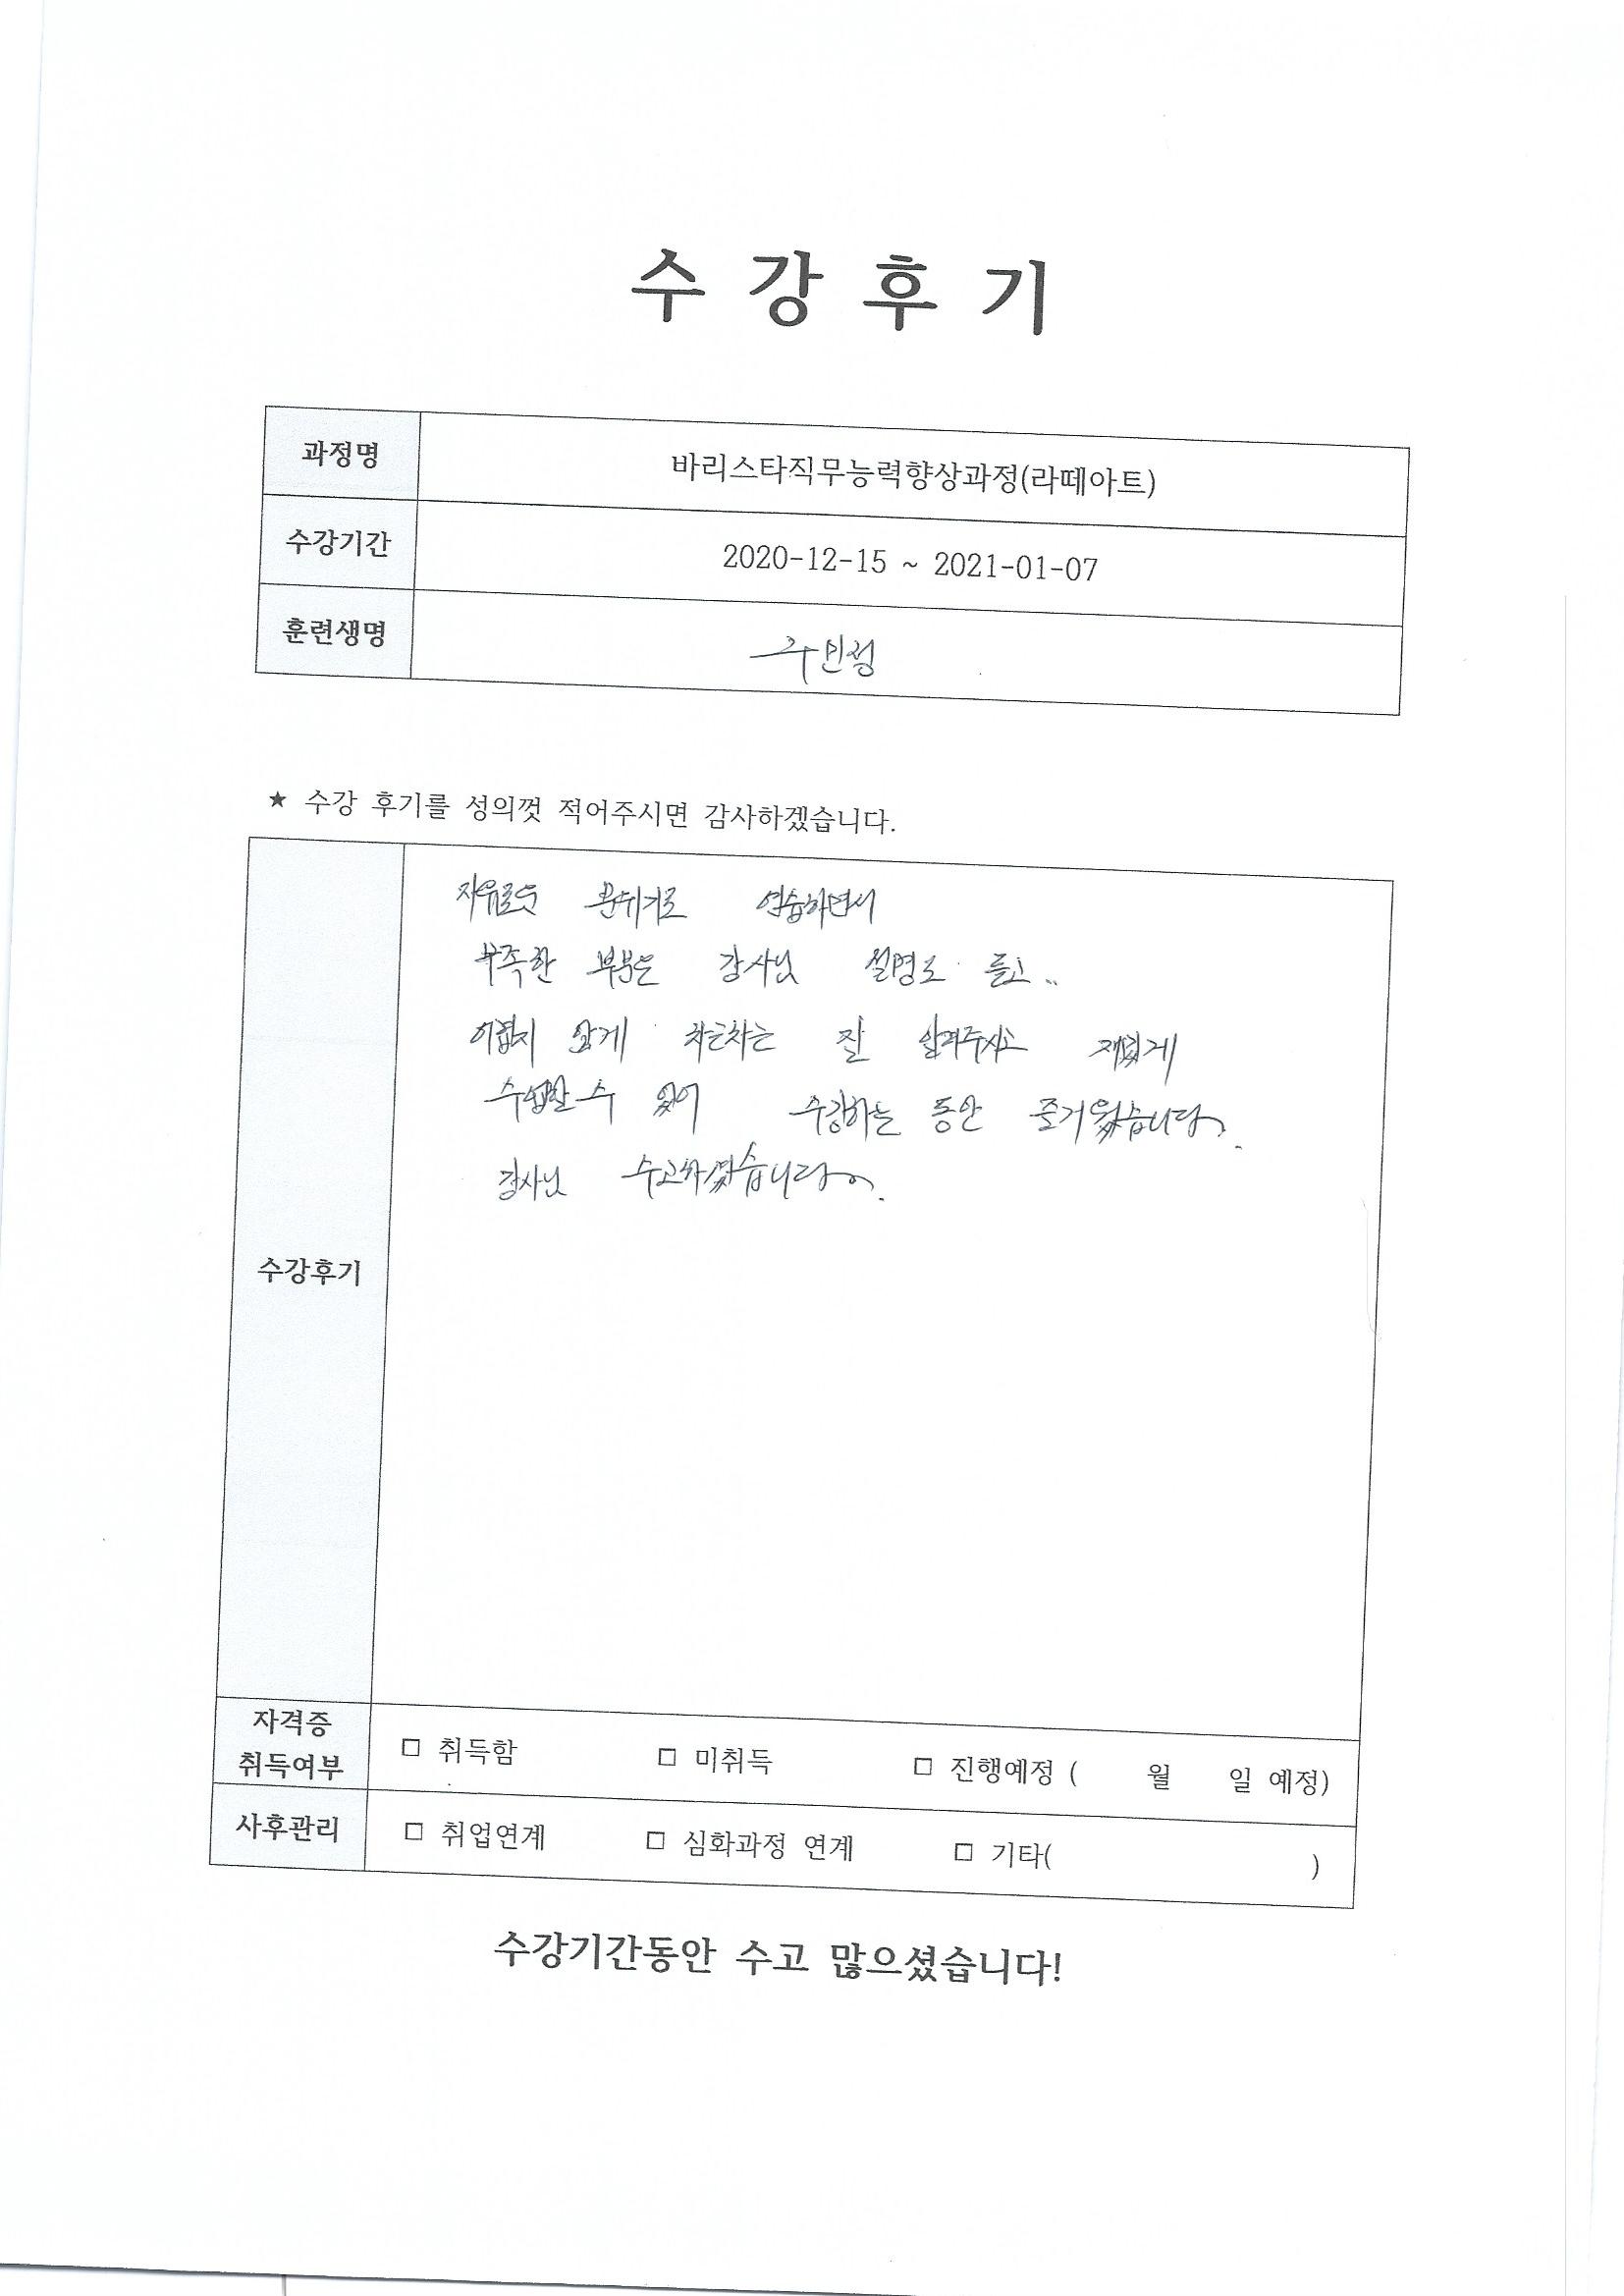 수 강 후 기
과정명 바리스타직무능력향상과정(라떼아트)
수강기간 2020-12-15 ~ 2021-01-07
훈련생명
★ 수강 후기를 성의껏 적어주시면 감사하겠습니다.
수강후기
자유로운 분위기로 연습하면서
부족한 부분은 강사님 설명도 듣고..
어렵지 않게 차근차근 잘 알려주시고 재밌게
수업할 수 있어 수강하는 동안 즐거웠습니다.
강사님 수고하셨습니다.
자격증
취득여부 □ 취득함 □ 미취득 □ 진행예정 ( 월 일 예정)
사후관리 □ 취업연계 □ 심화과정 연계 □ 기타( )
수강기간동안 수고 많으셨습니다!